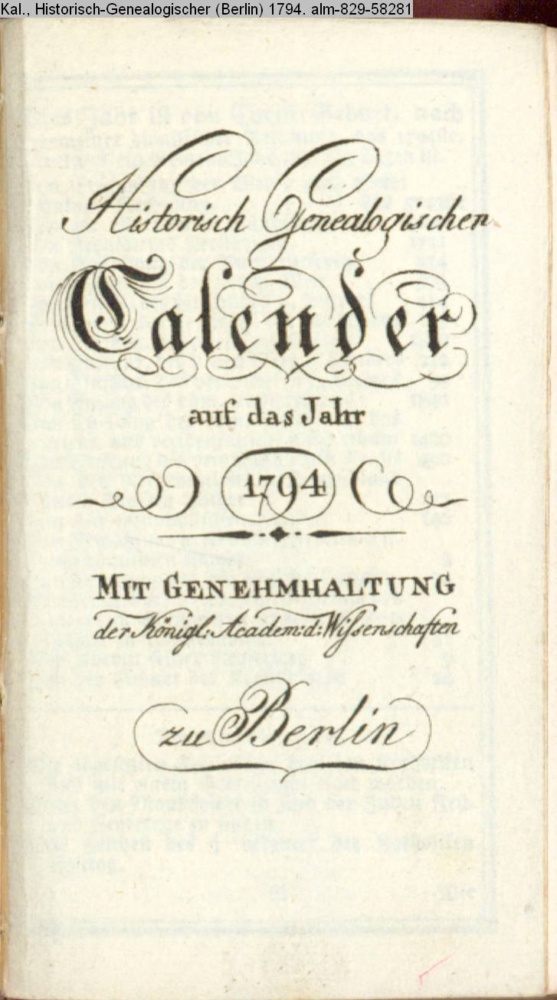 Kal., Historisch-Genealogischer (Berlin) 1794. alm-829-58281
Historisch Genealogischer
Calender
auf das Jahr
1794
MIT GENEHMHALTUNG
der Königl: Academ: d: Wissenschaften
zu Berlin